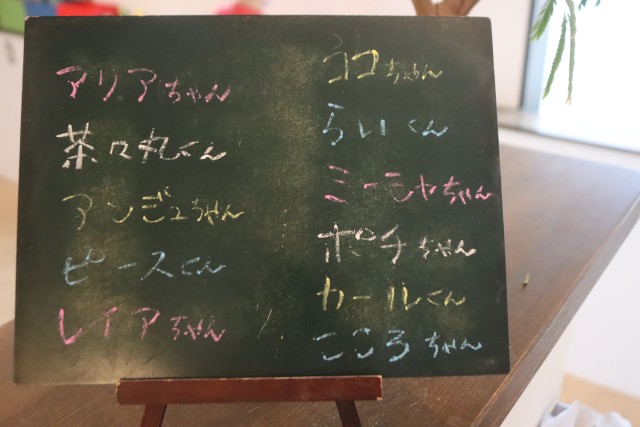 アリアちゃん
茶々丸くん
アンジュちゃん
ピースくん
レイアちゃん
ココちゃん
らいくん
ミーシャちゃん
ポチちゃん
カールくん
こころちゃん